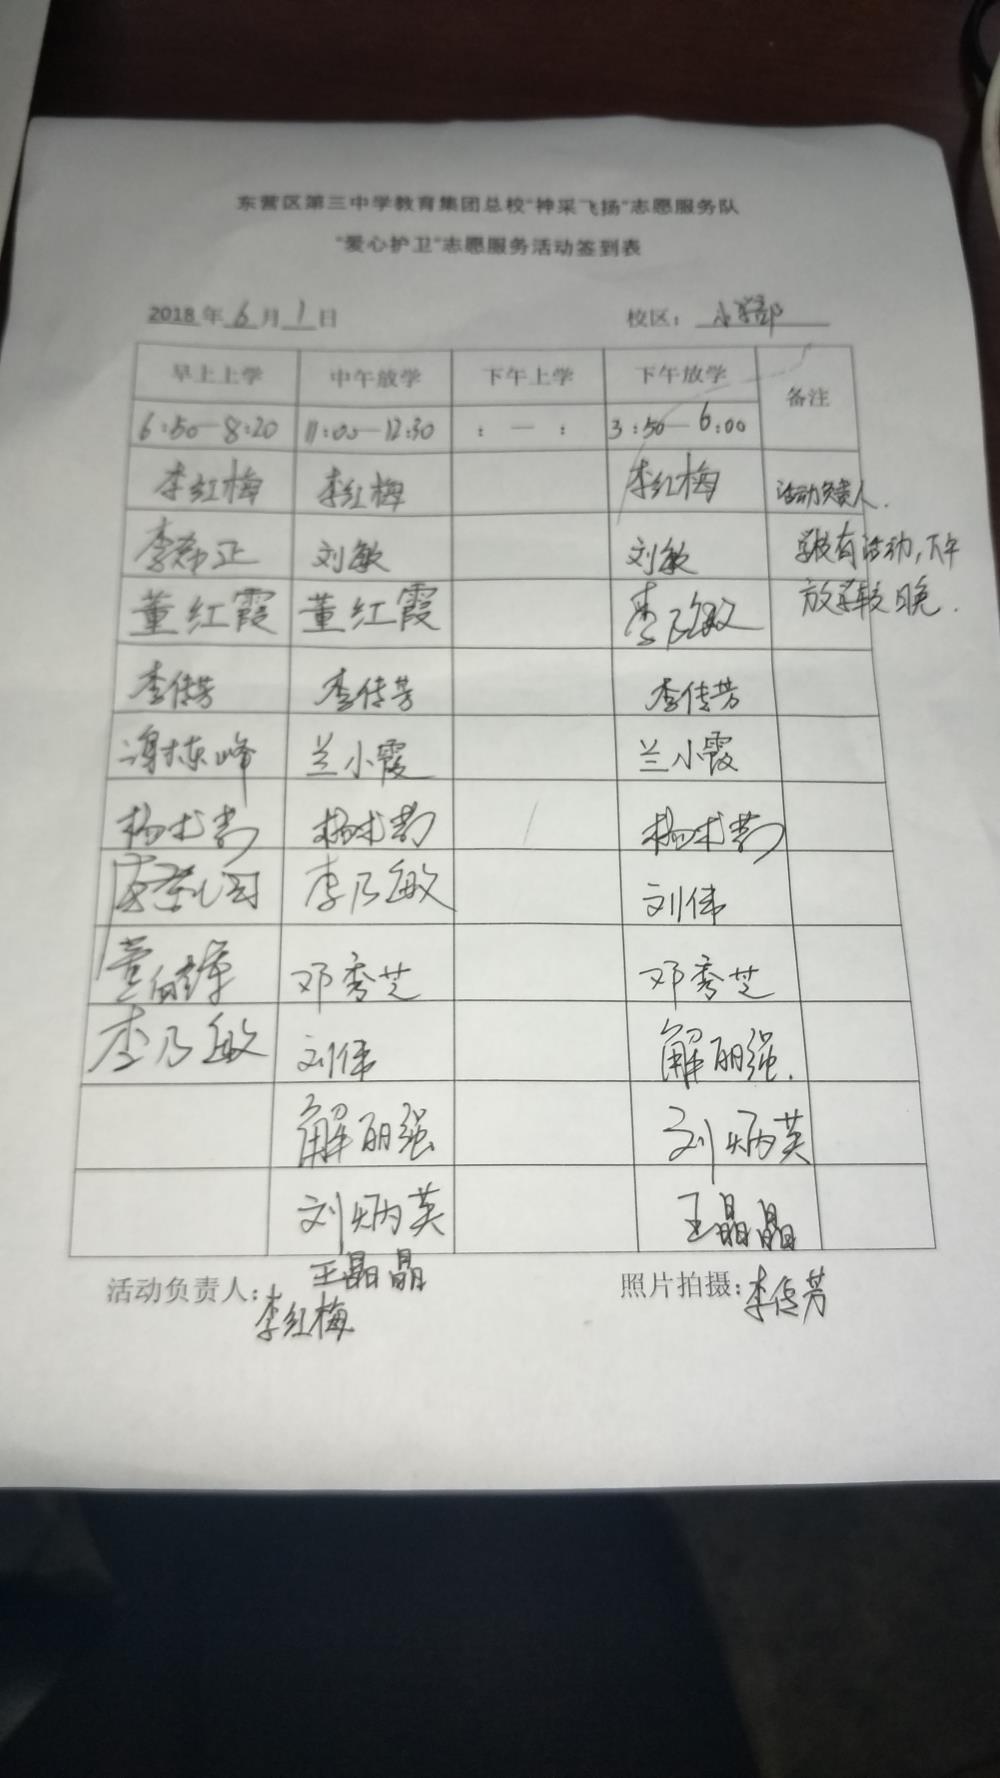 东营区第三中学教育集团总校“神采飞扬”志愿服务队
“爱心护卫”志愿服务活动签到表
2018 年 6 月 1 日 校区： 小学部
早上上学 中午放学 下午上学 下午放学 备注
6:50—8:20 11:00—12:30 : — : 3:50—6:00
李红梅 李红梅 李红梅 活动负责人.
李希正 刘敏 刘敏 学校有活动,下午
董红霞 董红霞 李乃敏 放学较晚.
李传芳 李传芳 李传芳
谢栋峰 兰小霞 兰小霞
杨术芳 杨术芳 杨术芳
李乃敏 刘伟
邓秀芝 邓秀芝
李乃敏 刘伟 解丽强.
解丽强 刘炳英
刘炳英 王晶晶
王晶晶
活动负责人：李红梅 照片拍摄：李传芳